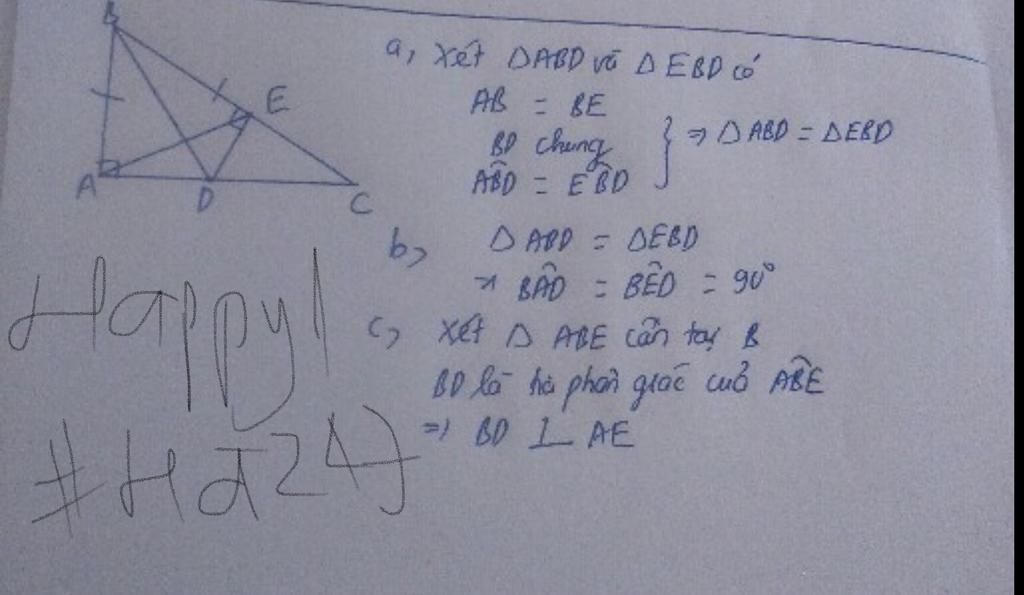 B
E
A
D
C
a, Xét ΔABD và ΔEBD có
AB = BE
BD chung
ABD̂ = EB̂D
} => ΔABD = ΔEBD
b, ΔABD = ΔEBD
=> BÂD = BÊD = 90°
c, Xét Δ ABE cân tại B
BD là phân giác của AB̂E
=> BD ⊥ AE
Happy!